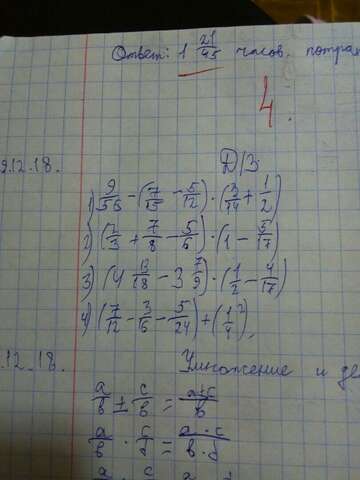 Ответ: 1 21/45 часов. потрач
4.
9.12.18. Д/З
1) 9/56 - (7/15 - 5/12) · (3/14 + 1/2)
2) (2/3 + 7/8 - 5/6) · (1 - 5/17)
3) (4 13/18 - 3 7/9) · (1/2 - 4/17)
4) (7/12 - 3/6 - 5/24) + (1/4)²
.12.18. Умножение и де
a/b ± c/b = a±c/b
a/b · c/d = a·c/b·d